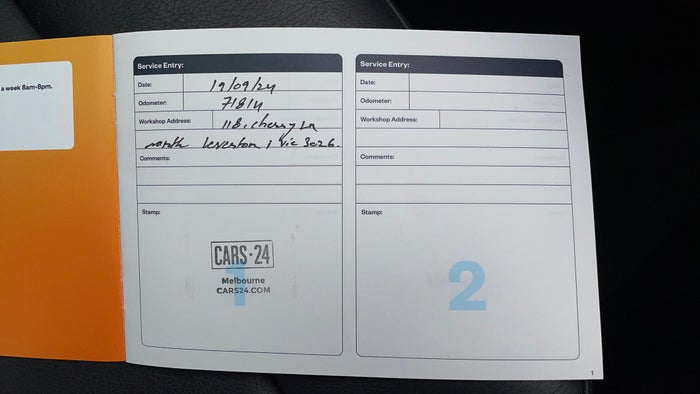 a week 8am-8pm.
Service Entry:
Date: 19/09/24
Odometer:
Workshop Address: 118, cherry Ln
north laverton, vic 3026.
Comments:
Stamp:
CARS·24
1
Melbourne
CARS24.COM
Service Entry:
Date:
Odometer:
Workshop Address:
Comments:
Stamp:
2
1